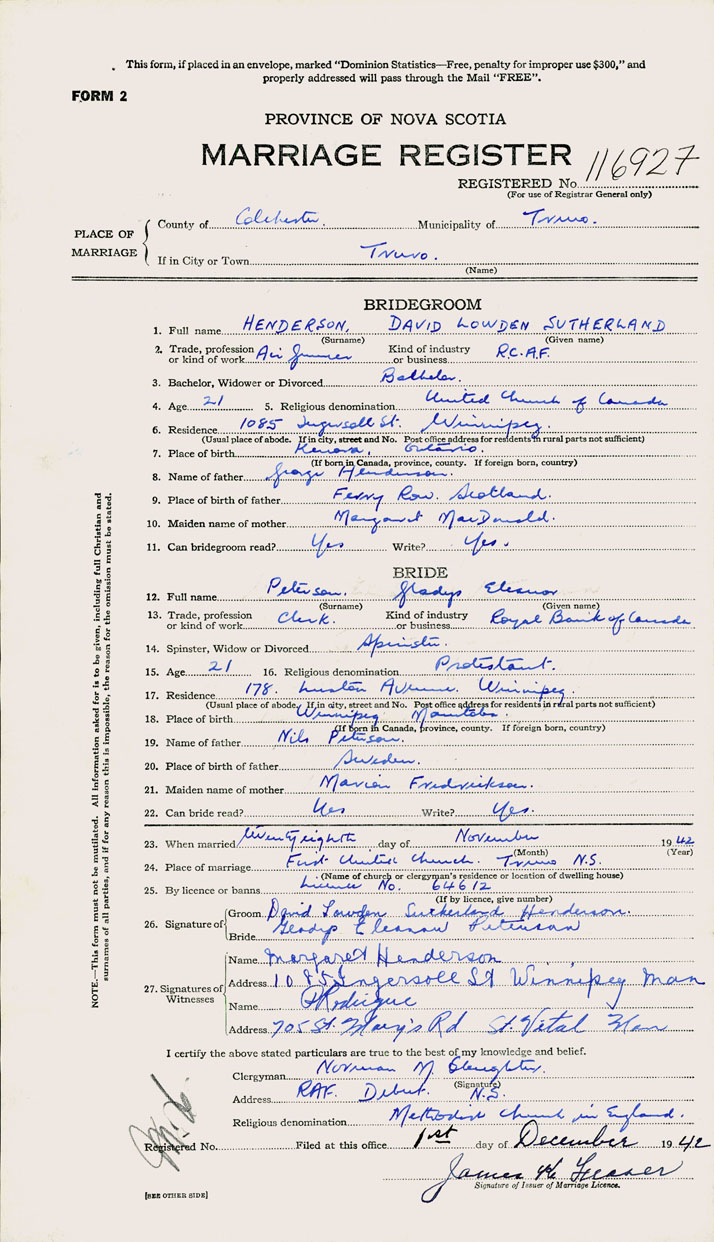 This form, if placed in an envelope, marked "Dominion Statistics—Free, penalty for improper use $300," and
properly addressed will pass through the Mail "FREE".
FORM 2
PROVINCE OF NOVA SCOTIA
MARRIAGE REGISTER
REGISTERED No. 116927
(For use of Registrar General only)
PLACE OF MARRIAGE
County of Colchester. Municipality of Truro.
If in City or Town Truro.
(Name)
BRIDEGROOM
1. Full name HENDERSON, DAVID LOWDEN SUTHERLAND
(Surname) (Given name)
2. Trade, profession or kind of work Air Gunner Kind of industry or business R.C.A.F.
3. Bachelor, Widower or Divorced Bachelor.
4. Age 21 5. Religious denomination United Church of Canada
6. Residence 1085 Ingersoll St. Winnipeg.
(Usual place of abode. If in city, street and No. Post office address for residents in rural parts not sufficient)
7. Place of birth Kenora, Ontario.
(If born in Canada, province, county. If foreign born, country)
8. Name of father George Henderson.
9. Place of birth of father Ferry Row. Scotland.
10. Maiden name of mother Margaret MacDonald.
11. Can bridegroom read? Yes Write? Yes.
BRIDE
12. Full name Peterson. Gladys Eleanor
(Surname) (Given name)
13. Trade, profession or kind of work Clerk. Kind of industry or business Royal Bank of Canada
14. Spinster, Widow or Divorced Spinster.
15. Age 21 16. Religious denomination Protestant.
17. Residence 178. Luxton Avenue. Winnipeg.
(Usual place of abode. If in city, street and No. Post office address for residents in rural parts not sufficient)
18. Place of birth Winnipeg Manitoba.
(If born in Canada, province, county. If foreign born, country)
19. Name of father Nils Peterson.
20. Place of birth of father Sweden.
21. Maiden name of mother Marion Fredrickson.
22. Can bride read? Yes Write? Yes.
23. When married twenty eighth day of November 1942
(Month) (Year)
24. Place of marriage First United Church. Truro N.S.
(Name of church or clergyman's residence or location of dwelling house)
25. By licence or banns Licence No. 64612
(If by licence, give number)
26. Signature of
Groom David Lowden Sutherland Henderson.
Bride Gladys Eleanor Peterson
27. Signatures of Witnesses
Name Margaret Henderson
Address 1085 Ingersoll St Winnipeg Man
Name Rodrigue
Address 705 St. Mary's Rd St. Vital Man
I certify the above stated particulars are true to the best of my knowledge and belief.
Clergyman Norman M
(Signature)
Address RAF. Debert. N.S.
Religious denomination Methodist Church in England.
Registered No. Filed at this office 1st day of December 1942
James
Signature of Issuer of Marriage Licence.
[SEE OTHER SIDE]
NOTE.—This form must not be mutilated. All information asked for is to be given, including full Christian and
surnames of all parties, and if for any reason this is impossible, the reason for the omission must be stated.